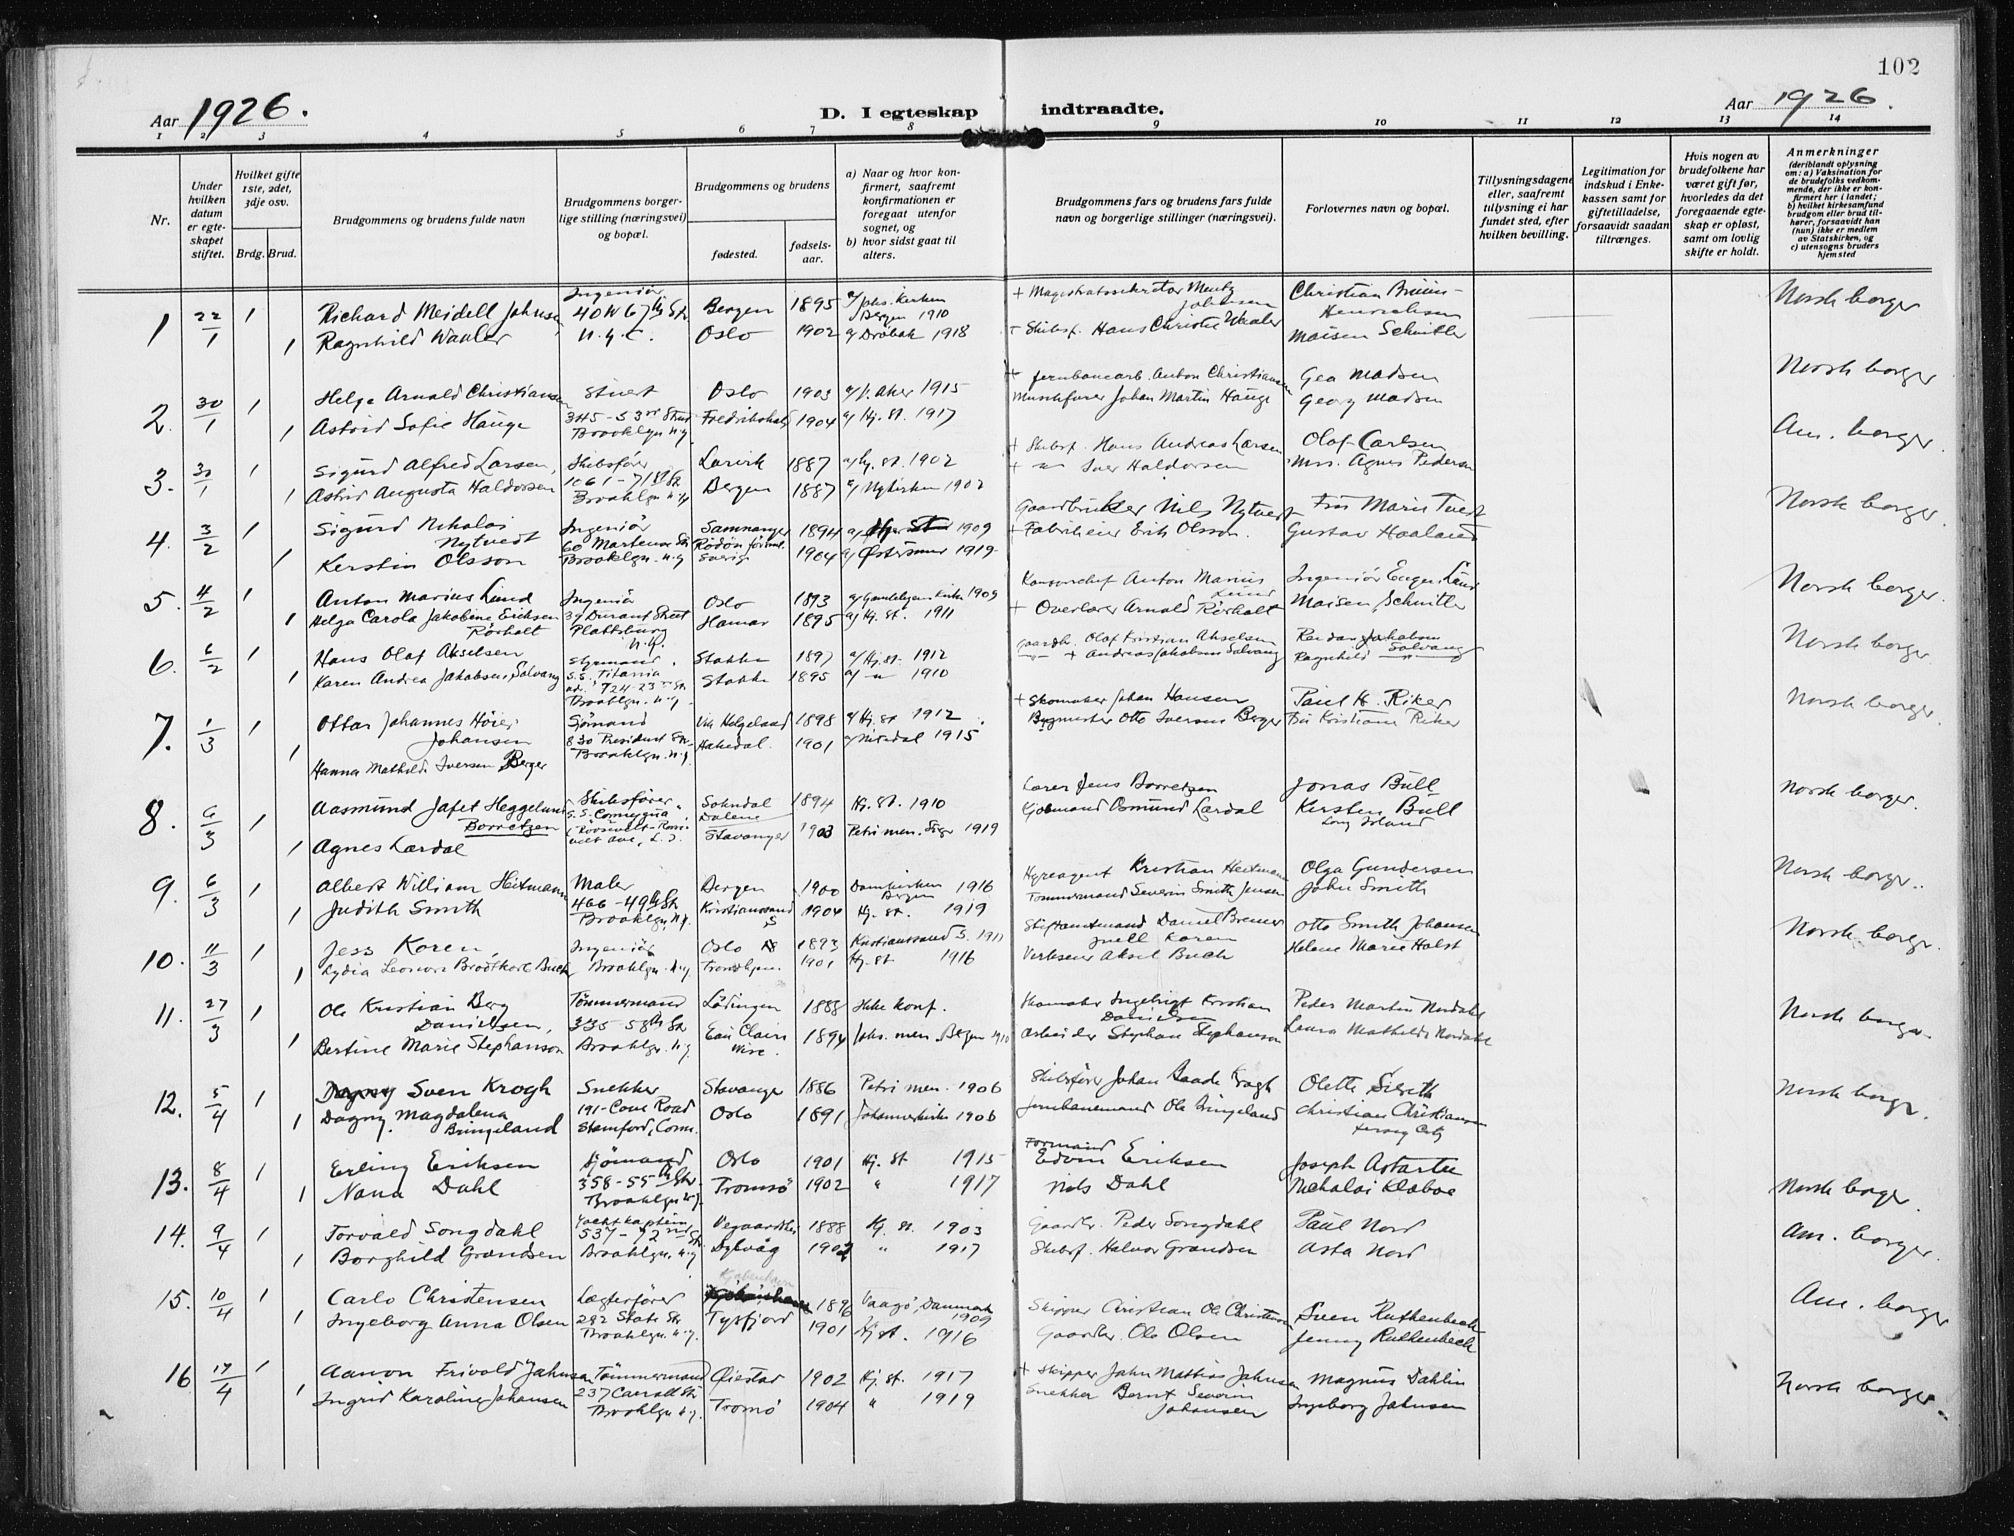 102
Aar 1926.
D. I egteskap indtraadte.
Aar 1926.
1 2 3 4 5 6 7 8 9 10 11 12 13 14
Nr.
Under hvilken datum er egte-skapet stiftet.
Hvilket gifte 1ste, 2det, 3dje osv.
Brdg. Brud.
Brudgommens og brudens fulde navn
Brudgommens borger-lige stilling (næringsvei) og bopæl.
Brudgommens og brudens
fødested.
fødsels-aar.
a) Naar og hvor kon-firmert, saafremt konfirmationen er foregaat utenfor sognet, og
b) hvor sidst gaat til alters.
Brudgommens fars og brudens fars fulde navn og borgerlige stillinger (næringsvei).
Forlovernes navn og bopæl.
Tillysningsdagene eller, saafremt tillysning ei har fundet sted, efter hvilken bevilling.
Legitimation for indskud i Enke-kassen samt for giftetilladelse, forsaavidt saadan tiltrænges.
Hvis nogen av brudefolkene har været gift før, hvorledes da det foregaaende egte-skap er opløst, samt om lovlig skifte er holdt.
Anmerkninger
(deriblandt oplysning om: a) Vaksination for de brudefolks vedkom-mende, der ikke er kon-firmert her i landet; b) hvilket kirkesamfund brudgom eller brud til-hører, forsaavidt han (hun) ikke er medlem av Statskirken, og c) utensogns bruders hjemsted
1 22/1 1 Richard Meidell Johnsen Ingeniør 40 W 67th St Bergen 1895 Bergen 1910 + Magistratssekretær Johansen Christian Henrichsen Norsk borger
1 Ragnhild Waaler N.Y.C. Oslo 1902 Drøbak 1918 Skibsf. Hans Christie Waaler Maisen Schnitler
2. 30/1 1 Helge Arnold Christiansen Oslo 1903 V. Aker 1915 + Jernbanearb. Anton Christiansen Geo Madsen Norsk borger
1 Astrid Sofie Hauge 345-53rd Street Brooklyn N.Y. Fredrikshald 1904 Hj. st. 1917 Johan Martin Hauge Georg Madsen
3. 30/1 1 Sigurd Alfred Larsen, Skibsfører Larvik 1887 Hj. st. 1902 + Skibsf. Hans Andreas Larsen Olaf Carlsen Am. borger
1 Astrid Augusta Haldorsen 1061-71st St Brooklyn N.Y. Bergen 1887 Nykirken 1902 + " Iver Haldorsen Mrs. Agnes Pedersen
4. 3/2 1 Sigurd Nikolai Nytvedt Ingeniør Samnanger 1894 1909 Gaardbruker Nils Nytvedt Fru Marie Tvedt Norsk borger
1 Kerstin Olsson 60 Martense St Brooklyn N.Y. Rödön Sverige 1904 Østersund 1919 + Fabrikeier Erik Olsson. Gustav Haaland
5. 4/2 1 Anton Marius Lund Ingeniør Oslo 1893 1909 Kontorchef Anton Marius Lund Ingeniør Eugen Lund Norsk borger.
1 Helga Carola Jakobine Eriksen Rørholt 34 Durant Street Plattsburg N.Y. Hamar 1895 Hj. st. 1911 + Overlærer Arnold Rørholt Maisen Schnitler
6. 6/2 1 Hans Olaf Akselsen Styrmand Stokke 1897 Hj. st. 1912 gaardbr. Olaf Kristian Akselsen Reidar Jakobsen Solvang Norsk borger.
1 Karen Andrea Jakobsen, Solvang S.S. Titania 724-23rd St Brooklyn N.Y. Stokke 1895 " 1910 + Andreas Jakobsen Solvang Ragnhild "
7. 1/3 1 Ottar Johannes Høier Johansen Sjømand Helgeland 1898 Hj. st. 1912. + Skomaker Johan Hansen Paul H. Riker Norsk borger.
1 Hanna Mathilde Iversen Berger 830 President St Brooklyn N.Y. Hakedal. 1901 Nitedal 1915 Bygmester Otto Iversen Berger Fru Kristiane Riker
8. 6/3 1 Aasmund Jafet Heggelund Borretzen Skibsfører. Sokndal Dalene 1894 Hj. st. 1910 Lærer Jens Borretzen Jonas Bull Norsk borger.
1 Agnes Lærdal Stavanger 1903 Petri men. 1919 Kjøbmand Osmund Lærdal Kirsten Bull Long Island
9. 6/3 1 Albert William Heitmann Maler Bergen 1900 Domkirken Bergen 1916 Hyreagent Kristian Heitmann Olga Gundersen Norsk borger.
1 Judith Smith 466-49th St Brooklyn, N.Y. Kristianssand S 1904 Hj. st. 1919 Tømmermand Severin Smith Jensen John Smith
10. 11/3 1 Jess Koren, Ingeniør Oslo 1893 Kristianssand S. 1911 Stiftamtmand Daniel Bremer Juell Koren Otto Smith Johansen Norsk borger.
1 Lydia Leonore Brodtkorb Buch Brooklyn N.Y. Tromsø 1901 Hj. st 1916 Verkseier Aksel Buch Helene Marie Holst
11. 27/3 1 Ole Kristian Berg Danielsen, Tømmermand Lödingen 1888 Ikke konf. Skomaker Ingebrigt Kristian Danielsen Peder Martin Nordahl Norsk borger.
1 Bertine Marie Stephanson 335-58th St Brooklyn N.Y. Eau Claire Wisc. 1894 Johs. men. Bergen 1910 arbeider Stephan Stephanson Laura Mathilde Nordahl
12. 5/4 1 Sven Krogh Snekker Stavanger 1886 Petri men. 1906 Skibsfører Johan Krogh Norsk borger.
1 Dagny Magdalena Bringeland 191-Cove Road Stamford, Conn. Oslo 1891 Johanneskirke 1906 Jernbanemand Ole Bringeland Christian Christiansen Jersey City
13. 8/4 1 Erling Eriksen Sjømand Oslo 1901 Hj. st 1915 Formand Edvin Eriksen Joseph
1 Nana Dahl 358-55th St Brooklyn N.Y. Tromsø 1902 " 1917 Nils Dahl Nicholai Klæboe Norsk borger.
14. 9/4 1 Torvald Songdahl Yachtkaptein Vegaardshei 1888 Hj. st. 1903 Gaardbr. Peder Songdahl Paul Nord Am. borger.
1 Borghild Grandsen 537-72nd St Brooklyn N.Y. Dybvåg 1902 " 1917 Skibsf. Halvor Grandsen Asta Nord
15. 10/4 1 Carlo Christensen Lægterfører Kjøbenhavn 1896 Vaagø, Danmark 1909 Skipper Christian Ole Christensen Sven Ruthenbeck Am. borger
1 Ingeborg Anna Olsen 282 State St Brooklyn N.Y. Tysfjord 1901 Hj. st. 1916 Gaardbr. Ole Olsen Jenny Ruthenbeck
16 17/4 1 Aanon Frivold Jahnsen Tømmermand Øiestad 1902 Hj. st. 1917 + Skipper Jahn Mathias Jahnsen Magnus Dahlin Norsk borger.
1 Ingrid Karoline Johansen 237 Carroll St Brooklyn N.Y. Tromø 1904 " 1919 Snekker Bernt Severin Johansen Ingeborg Jahnsen